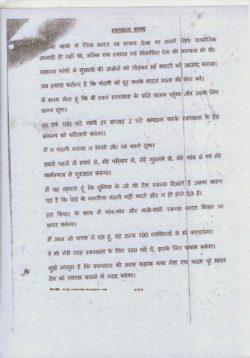 स्वच्छता शपथ
गांधी ने जिस भारत का सपना देखा था उसमें सिर्फ राजनैतिक
आजादी ही नहीं थी, बल्कि एक स्वच्छ एवं विकसित देश की कल्पना भी थी।
महात्मा गांधी ने गुलामी की जंजीरों को तोड़कर माँ भारती को आजाद कराया।
अब हमारा कर्तव्य है कि गंदगी को दूर करके भारत माता की सेवा करें।
मैं शपथ लेता हूँ कि मैं स्वयं स्वच्छता के प्रति सजग रहूँगा और उसके लिए
समय दूंगा।
हर वर्ष 100 घंटे यानी हर सप्ताह 2 घंटे श्रमदान करके स्वच्छता के इस
संकल्प को चरितार्थ करूंगा।
मैं न गंदगी करूंगा न किसी और को करने दूंगा।
सबसे पहले मैं स्वयं से, मेरे परिवार से, मेरे मुहल्ले से, मेरे गांव से एवं मेरे
कार्यस्थल से शुरुआत करूंगा।
मैं यह मानता हूँ कि दुनिया के जो भी देश स्वच्छ दिखते हैं उसका कारण
यह है कि वहां के नागरिक गंदगी नहीं करते और न ही होने देते हैं।
इस विचार के साथ मैं गांव-गांव और गली-गली स्वच्छ भारत मिशन का
प्रचार करूंगा।
मैं आज जो शपथ ले रहा हूं, वह अन्य 100 व्यक्तियों से भी करवाऊंगा।
वे भी मेरी तरह स्वच्छता के लिए 100 घंटे दें, इसके लिए प्रयास करूंगा।
मुझे मालूम है कि स्वच्छता की तरफ बढ़ाया गया मेरा एक कदम पूरे भारत
देश को स्वच्छ बनाने में मदद करेगा।